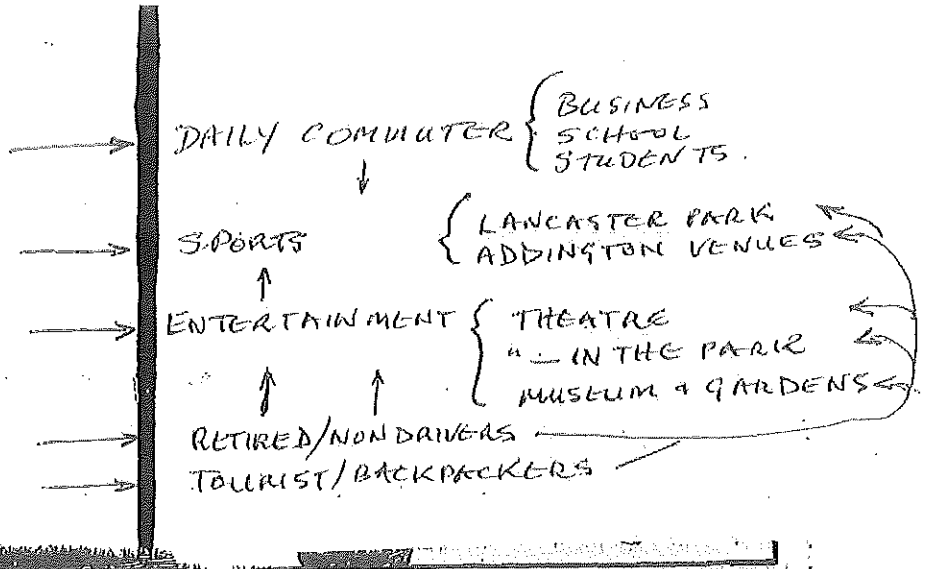 DAILY COMMUTER { BUSINESS
SCHOOL
STUDENTS.
SPORTS { LANCASTER PARK
ADDINGTON VENUES
ENTERTAINMENT { THEATRE
" — IN THE PARK
MUSEUM + GARDENS
RETIRED/NON DRIVERS
TOURIST/BACKPACKERS